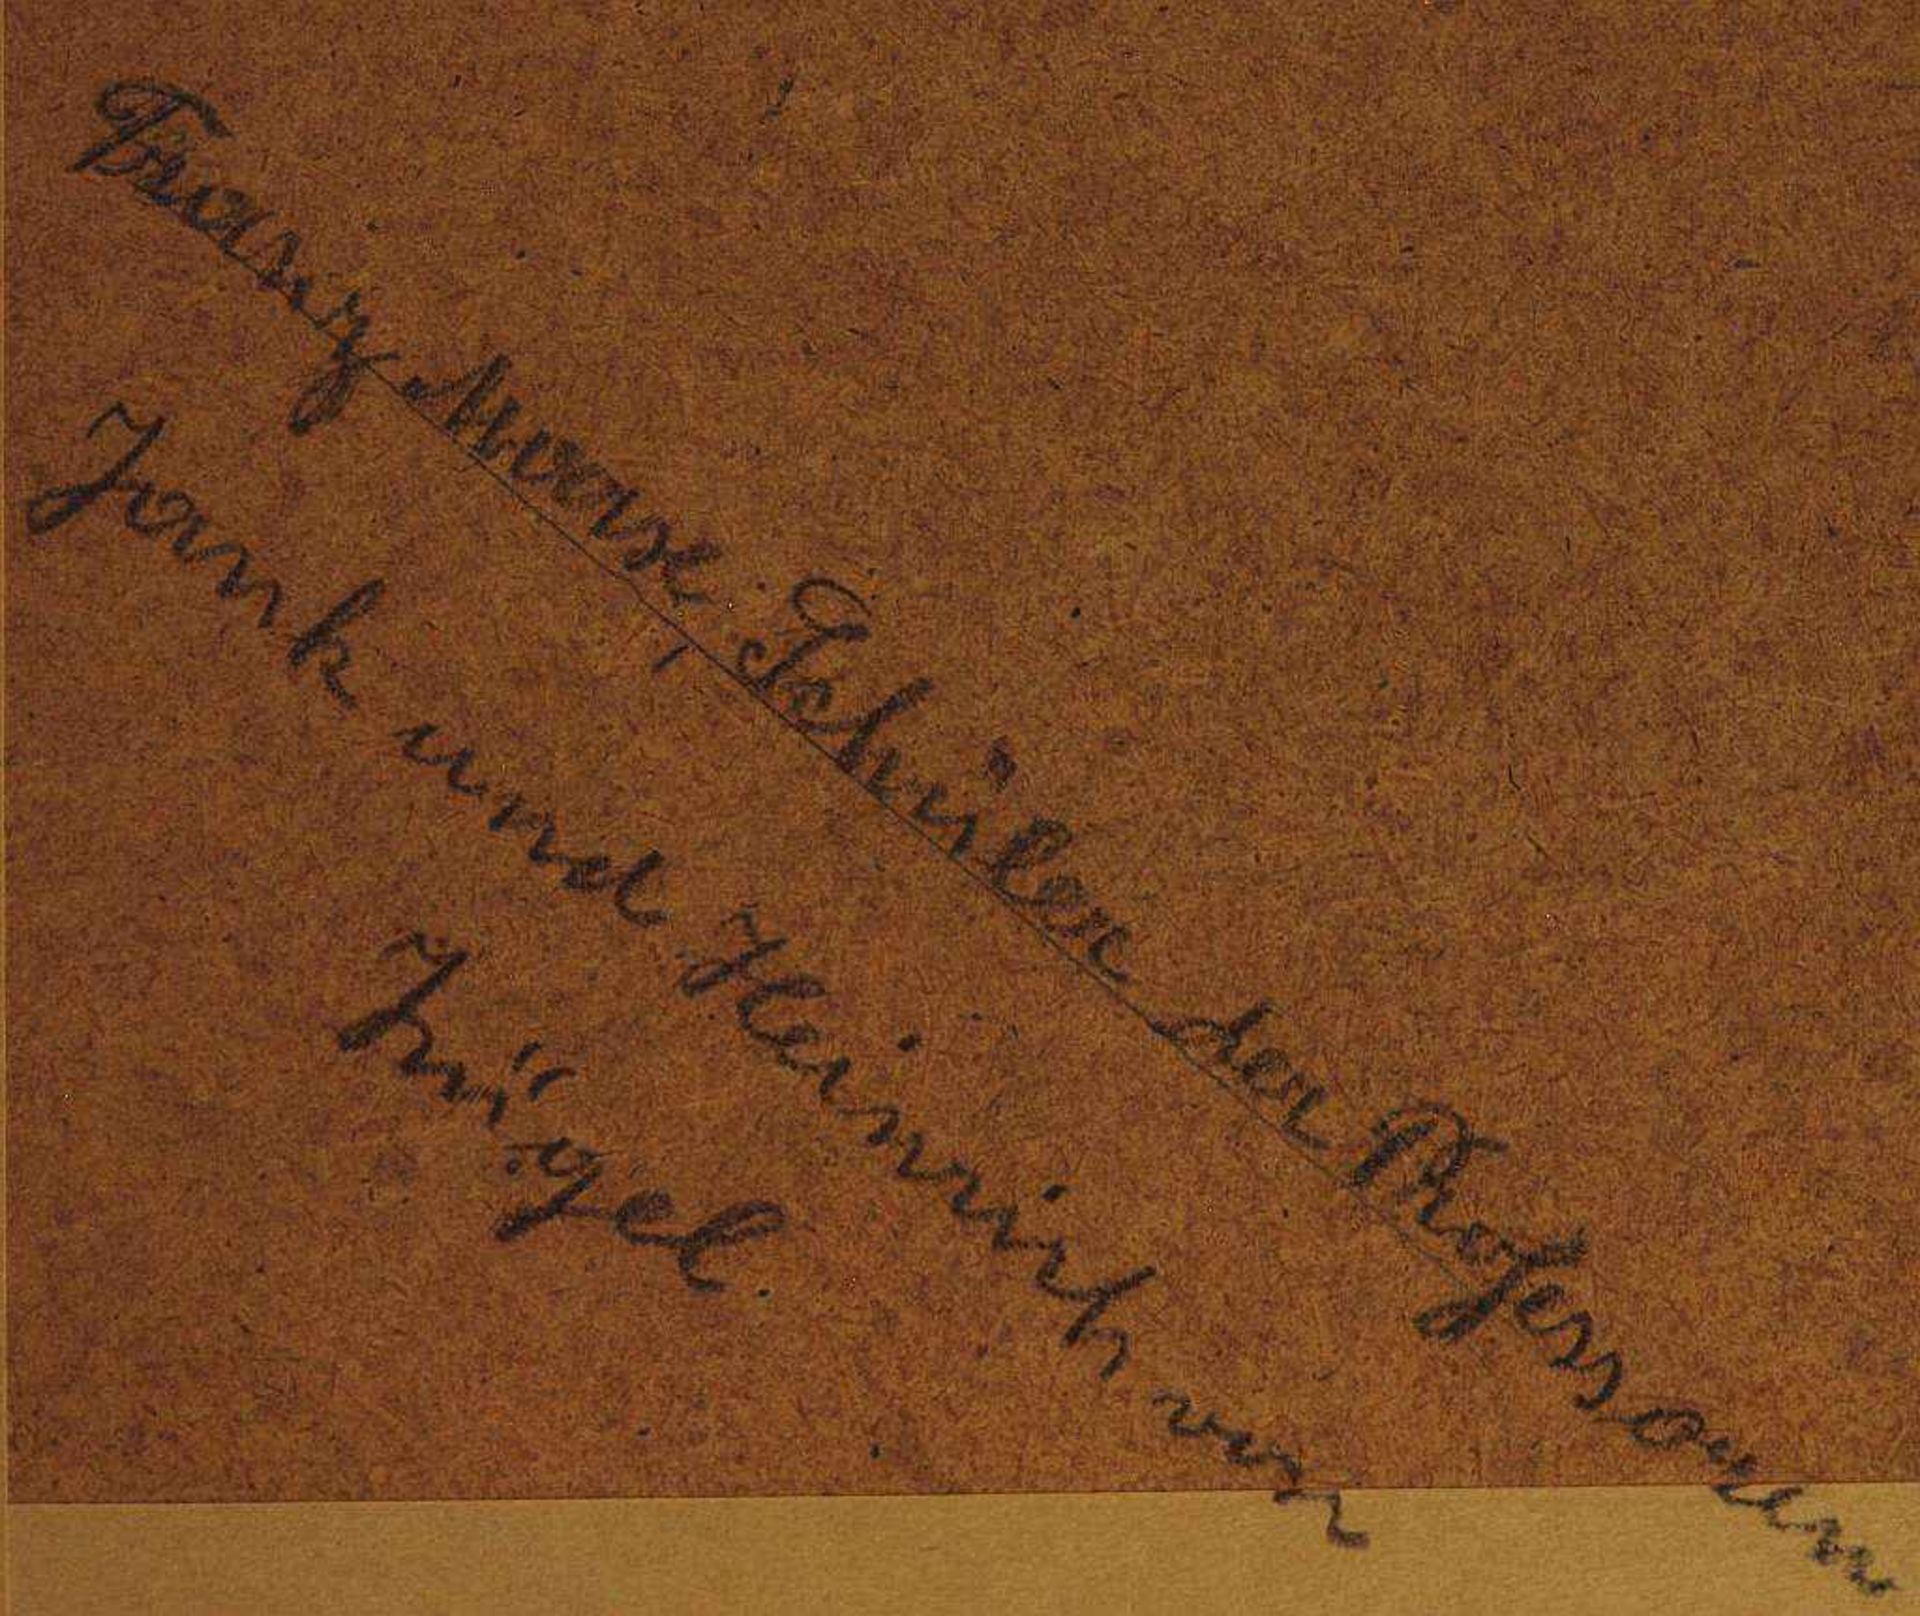 Franz Schüler der Professoren
Jank und Heinrich von
Zügel.